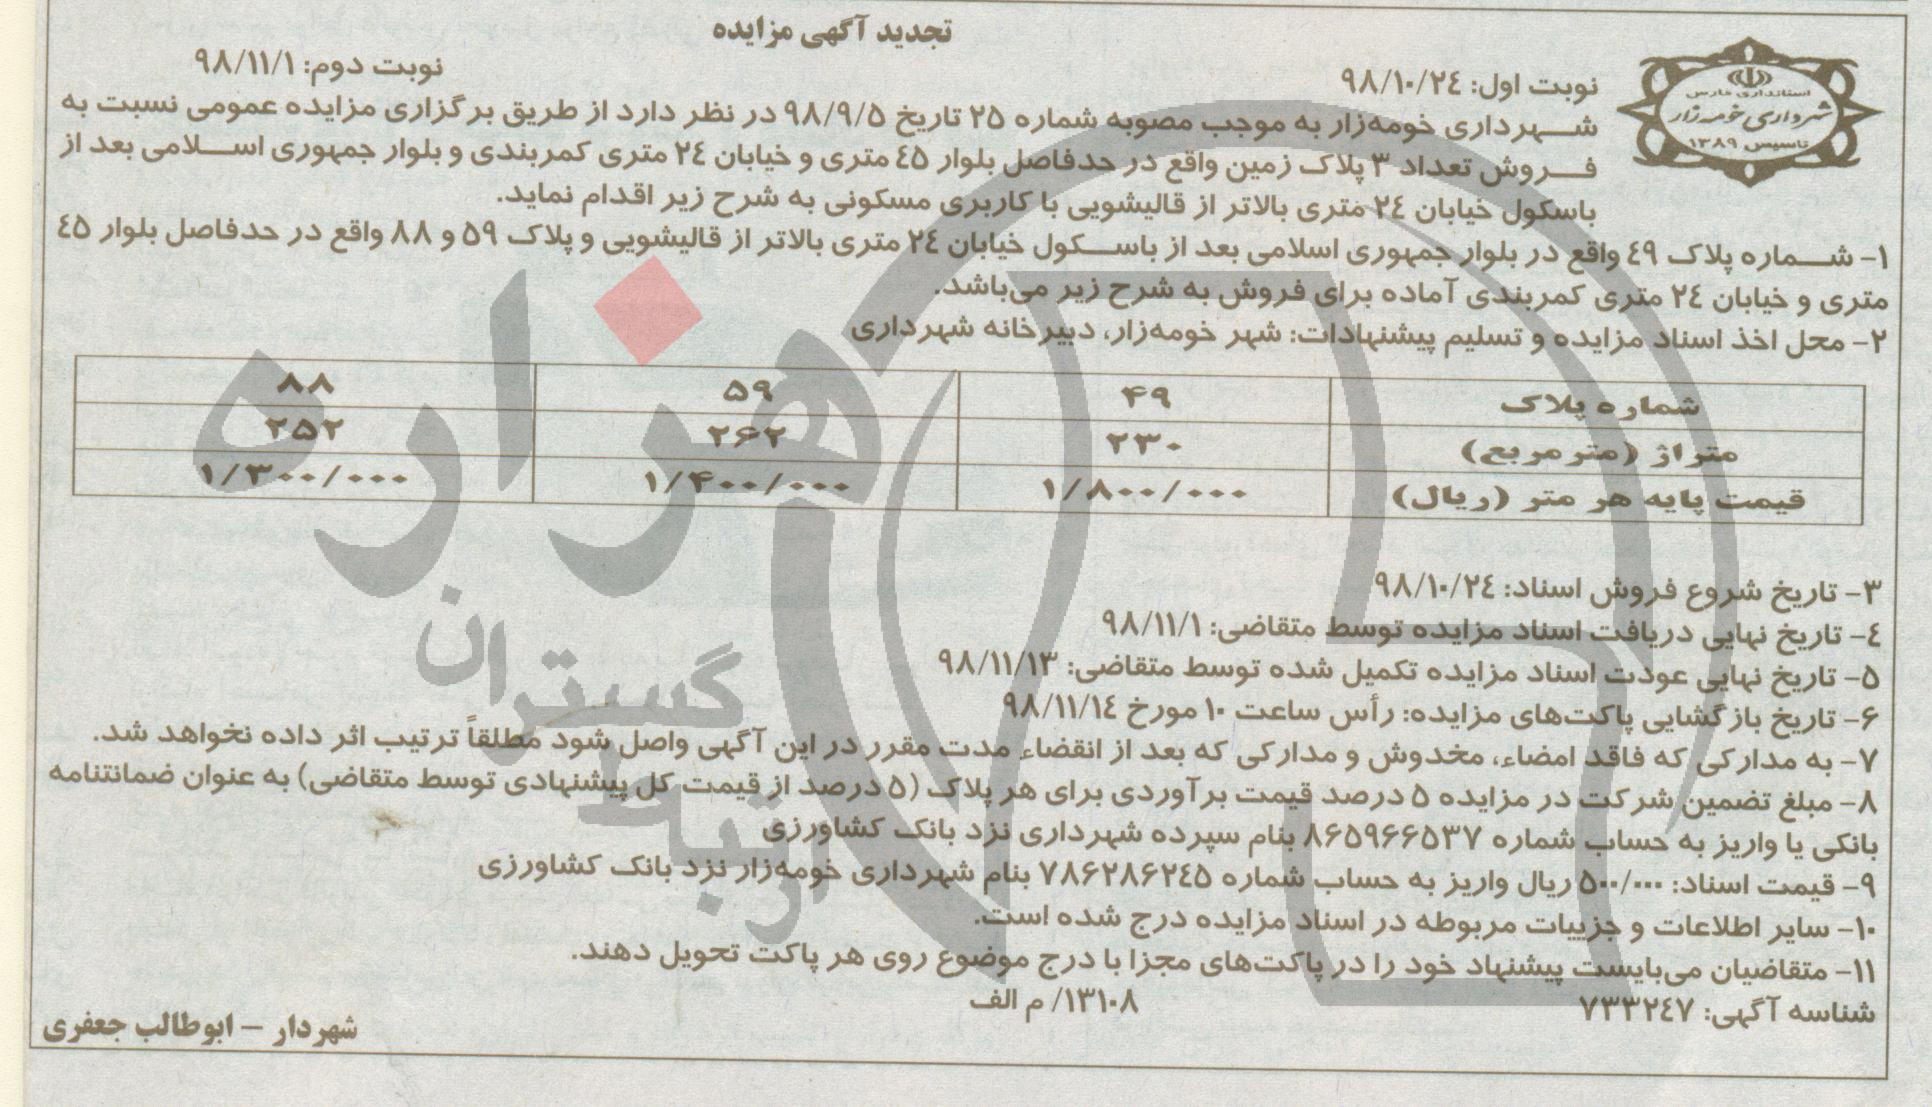 تجدید آگهی مزایده
استانداری فارس
شهرداری خومه‌زار
تاسیس ۱۳۸۹
نوبت اول: ۹۸/۱۰/۲٤
نوبت دوم: ۹۸/۱۱/۱
شهرداری خومه‌زار به موجب مصوبه شماره ۲۵ تاریخ ۹۸/۹/۵ در نظر دارد از طریق برگزاری مزایده عمومی نسبت به
فروش تعداد ۳ پلاک زمین واقع در حدفاصل بلوار ٤۵ متری و خیابان ۲٤ متری کمربندی و بلوار جمهوری اسلامی بعد از
باسکول خیابان ۲٤ متری بالاتر از قالیشویی با کاربری مسکونی به شرح زیر اقدام نماید.
۱- شماره پلاک ٤۹ واقع در بلوار جمهوری اسلامی بعد از باسکول خیابان ۲٤ متری بالاتر از قالیشویی و پلاک ۵۹ و ۸۸ واقع در حدفاصل بلوار ٤۵
متری و خیابان ۲٤ متری کمربندی آماده برای فروش به شرح زیر می‌باشد.
۲- محل اخذ اسناد مزایده و تسلیم پیشنهادات: شهر خومه‌زار، دبیرخانه شهرداری
شماره پلاک ۴۹ ۵۹ ۸۸
متراژ (مترمربع) ۲۳۰ ۲۶۲ ۲۵۲
قیمت پایه هر متر (ریال) ۱/۸۰۰/۰۰۰ ۱/۴۰۰/۰۰۰ ۱/۳۰۰/۰۰۰
۳- تاریخ شروع فروش اسناد: ۹۸/۱۰/۲٤
٤- تاریخ نهایی دریافت اسناد مزایده توسط متقاضی: ۹۸/۱۱/۱
۵- تاریخ نهایی عودت اسناد مزایده تکمیل شده توسط متقاضی: ۹۸/۱۱/۱۳
۶- تاریخ بازگشایی پاکت‌های مزایده: رأس ساعت ۱۰ مورخ ۹۸/۱۱/۱٤
۷- به مدارکی که فاقد امضاء، مخدوش و مدارکی که بعد از انقضاء مدت مقرر در این آگهی واصل شود مطلقاً ترتیب اثر داده نخواهد شد.
۸- مبلغ تضمین شرکت در مزایده ۵ درصد قیمت برآوردی برای هر پلاک (۵ درصد از قیمت کل پیشنهادی توسط متقاضی) به عنوان ضمانتنامه
بانکی یا واریز به حساب شماره ۸۶۵۹۶۶۵۳۷ بنام سپرده شهرداری نزد بانک کشاورزی
۹- قیمت اسناد: ۵۰۰/۰۰۰ ریال واریز به حساب شماره ۷۸۶۲۸۶۲٤۵ بنام شهرداری خومه‌زار نزد بانک کشاورزی
۱۰- سایر اطلاعات و جزییات مربوطه در اسناد مزایده درج شده است.
۱۱- متقاضیان می‌بایست پیشنهاد خود را در پاکت‌های مجزا با درج موضوع روی هر پاکت تحویل دهند.
شناسه آگهی: ۷۳۳۲٤۷
۱۳۱۰۸/ م الف
شهردار – ابوطالب جعفری
هزاره
گستران
ارتباط